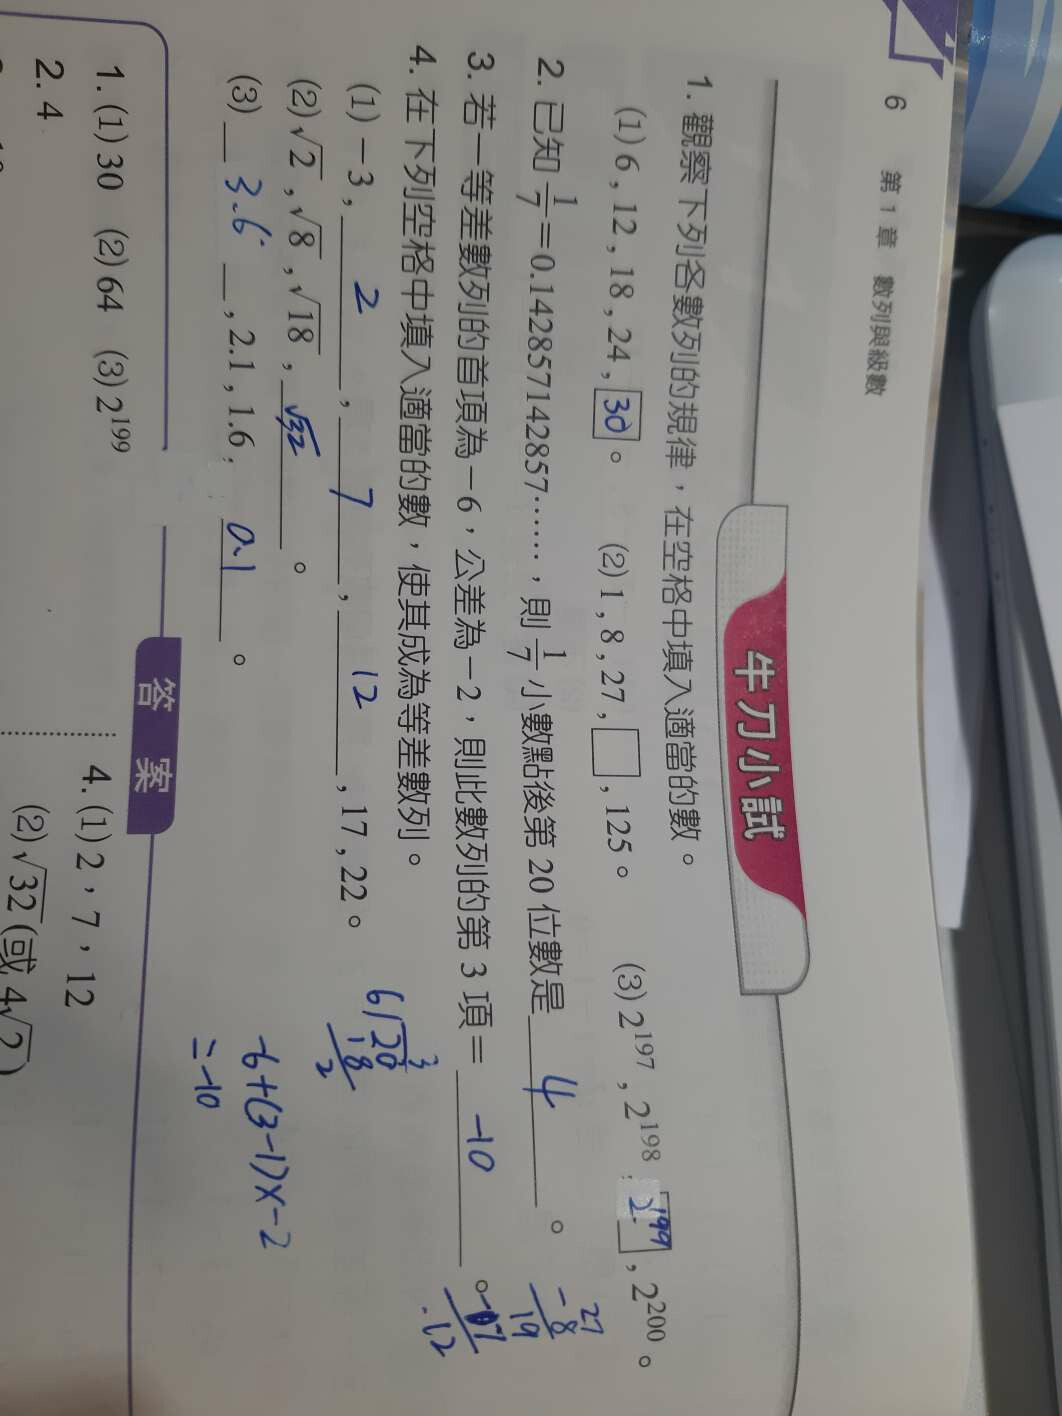 6 第1章 數列與級數
牛刀小試
1. 觀察下列各數列的規律，在空格中填入適當的數。
(1) 6 , 12 , 18 , 24 , 30 。 (2) 1 , 8 , 27 , □ , 125。 (3) 2¹⁹⁷ , 2¹⁹⁸ , 2¹⁹⁹ , 2²⁰⁰。
27
-8
19
2. 已知 1/7 = 0.142857142857⋯⋯，則 1/7 小數點後第 20 位數是 4 。
3. 若一等差數列的首項為 -6，公差為 -2，則此數列的第 3 項 = -10 。
4. 在下列空格中填入適當的數，使其成為等差數列。
(1) -3 , 2 , 7 , 12 , 17 , 22。
6 20 3
18
2
(2) √2 , √8 , √18 , √32 。
(3) 3.6 , 2.1 , 1.6 , 0.1 。
-6+(3-1)x-2
=-10
答案
1. (1) 30 (2) 64 (3) 2¹⁹⁹
2. 4
4. (1) 2，7，12
(2) √32 (或 4√2)